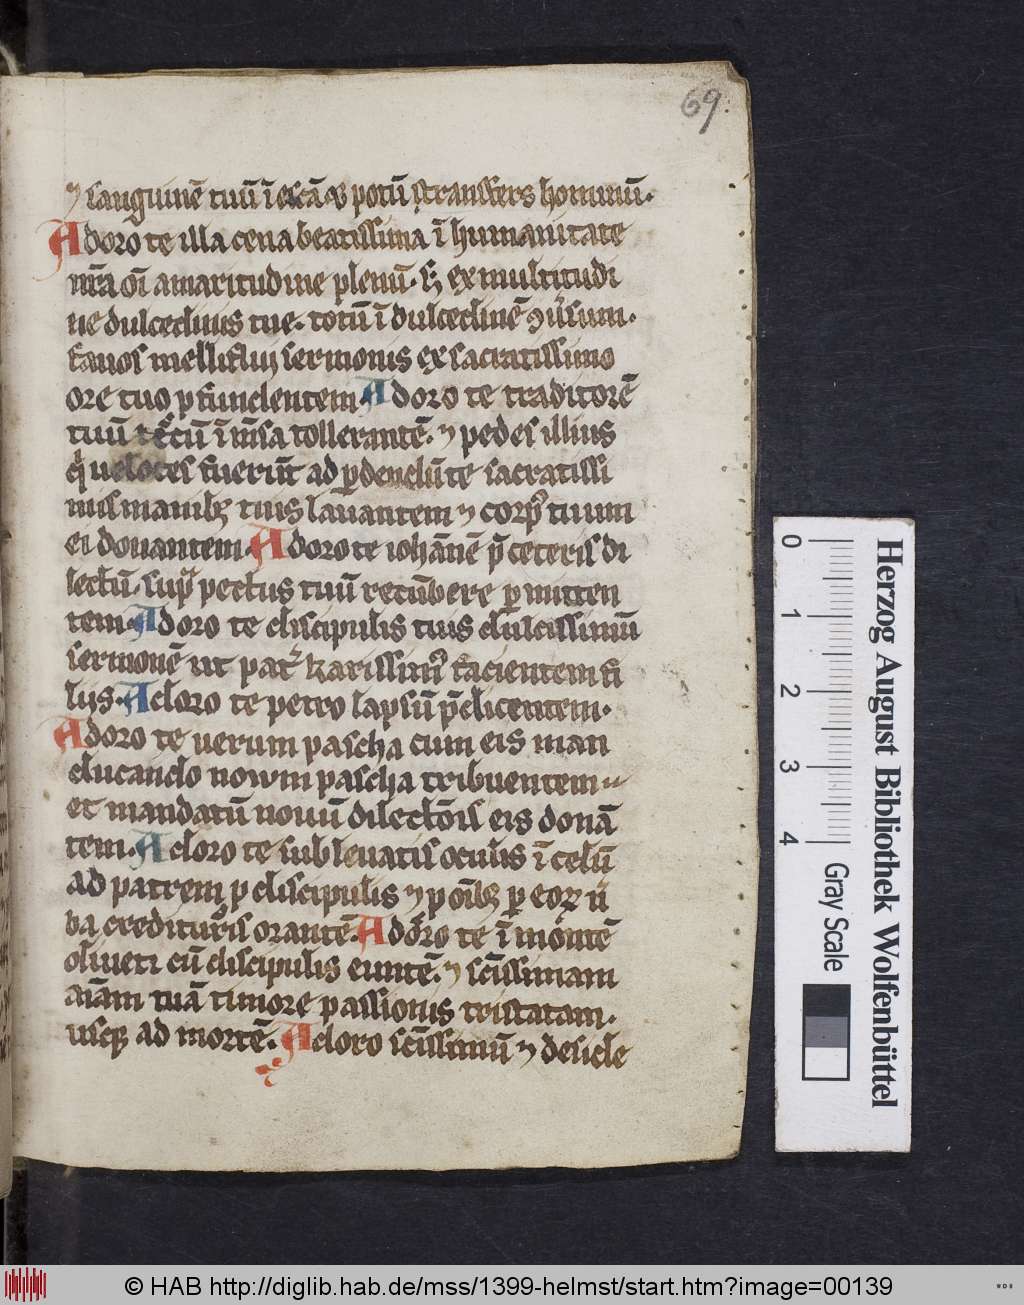 69.
⁊ sanguinē tuū ī escā ⁊ potū transfers hominū.
Adoro te illa cena beatissima ī humanitate
nr̄a oī amaritudine plenū. sꝫ ex multitudi
ne dulcedinis tue. totū ī dulcedinē ꝯuersum.
fauos melliflui sermonis ex sacratissimo
ore tuo ꝓfundentem. Adoro te traditorē
tuū tecū ī mēsa tollerantē. ⁊ pedes illius
qui ueloces fuerūt ad ꝑdendū te sacratissi
mis manibꝫ tuis lauantem ⁊ corpꝰ tuum
ei donantem. Adoro te iohānē p̄ ceteris di
lectū. supra pectus tuū recūbere ꝑmitten
tem. Adoro te discipulis tuis dulcissimū
sermonē ut pater karissimꝰ facientem fi
liis. Adoro te petro lapsū p̄dicentem.
Adoro te uerum pascha cum eis man
ducando nouum pascha tribuentem
et mandatū nouū dilectōis eis donā
tem. Adoro te subleuatis oculis ī celū
ad patrem ꝓ discipulis ⁊ ꝓ oībꝫ ꝑ eoꝝ u̅
ba credituris orantē. Adoro te ī montē
oliueti cū discipulis euntē. ⁊ scīssimam
aīam tuā timore passionis tristatam.
usqꝫ ad mortē. Adoro scīssimū ⁊ deside
Herzog August Bibliothek Wolfenbüttel
0 1 2 3 4
Gray Scale
© HAB http://diglib.hab.de/mss/1399-helmst/start.htm?image=00139